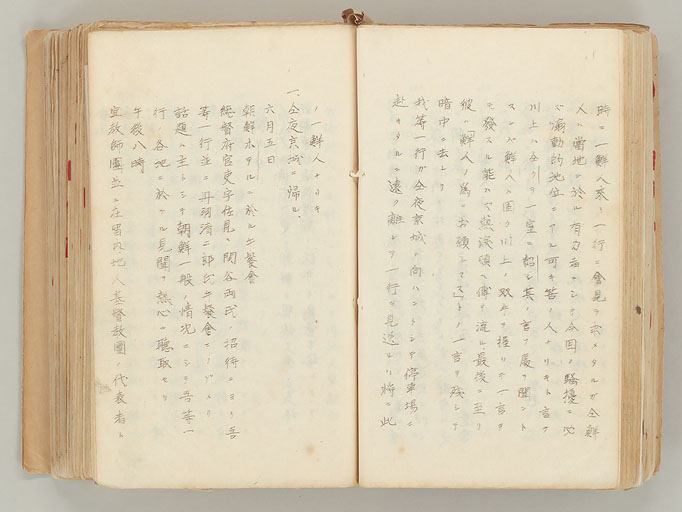 時ニ一鮮人来リ一行ニ會見ヲ求メタルガ全鮮
人ハ當地ニ於ル有力者ニシテ今回ノ騒擾ニ必
ズ煽動的地位ニアル可キ筈ノ人ナリキト言フ
川上ハ全クヲ一室ニ招シ其ノ言フ處ヲ聞ント
スレバ鮮人ハ固ク川上ノ双手ヲ握リ亦一言ヲ
モ發スル能ハズ熱涙頬ヲ傳テ流ル最後ニ至リ
彼ハ鮮人ノ爲ニお頼トマストノ一言ヲ残シテ
暗中ニ去レリ
我等一行ガ全夜京城ニ向ハントシテ停車場ニ
赴キタルニ遠ク離レテ一行ヲ見送レリ將ニ此
ノ一鮮人ナリキ
一、全夜京城ニ帰ル、
六月五日
朝鮮ホテルニ於ル午餐會
總督府官吏宇佐見、関谷両氏ノ招待ニヨリ吾
等一行並ニ丹羽清二郎氏午餐會ニノゾメリ
話題ハ主トシテ朝鮮一般ノ情況ニシテ吾等一
行ノ各地ニ於ケル見聞ヲ熱心ニ聴取セリ
午後八時
宣教師團並ニ在留内地人基督教團ノ代表者ト